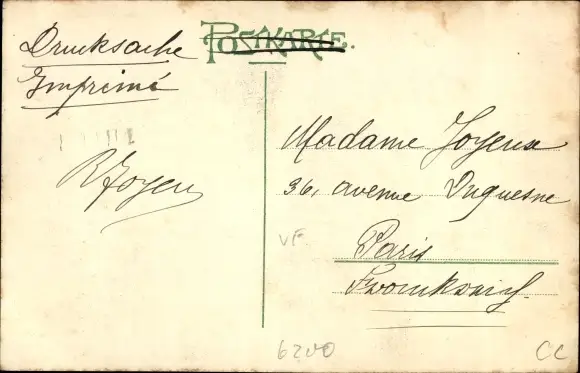 Drucksache
Imprimé
POSTKARTE.
R Joyeu
Madame Joyeux
36, avenue Duquesne
Paris
Frankreich
VF
6200
CC